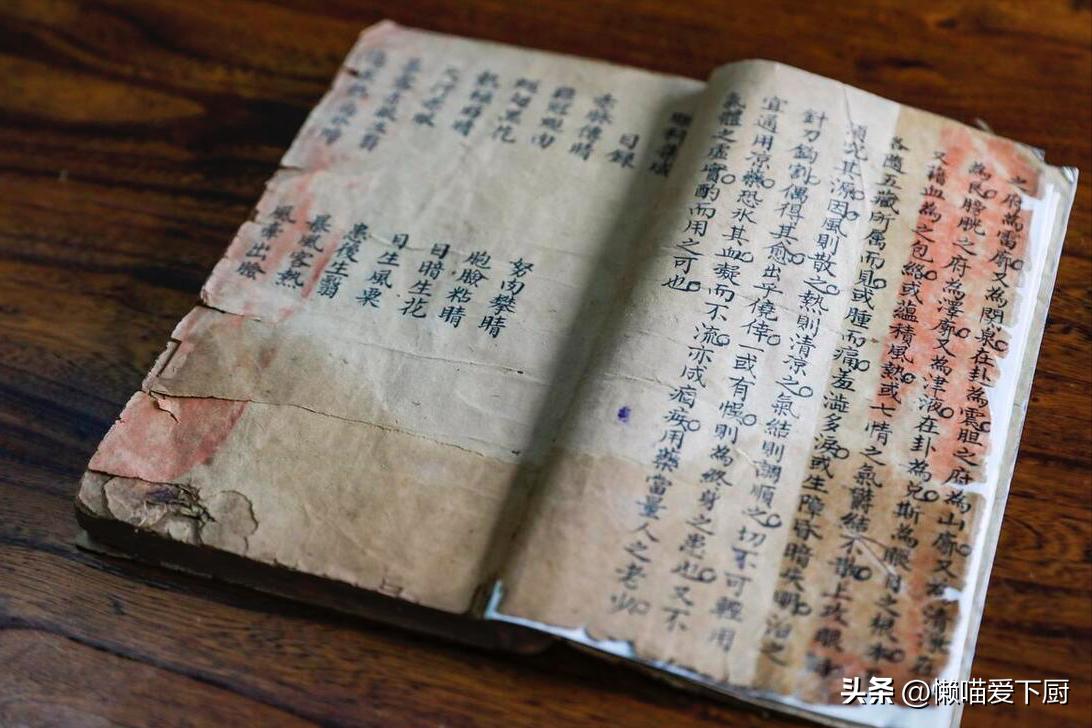 之府為雷廓又為関泉在卦為震胆之府為山廓又名清
為艮膀胱之府為澤廓又為津液在卦為兌斯為眼目之根本
又藉血為之包絡或蘊積風熱或七情之氣欝結不散上攻眼
各隨五藏所属而見或腫而痛羞澁多淚或生障昏暗失明治之
須究其源因風則散之熱則清凉之氣結則調順之切不可輕用
針刀鈎割偶得其愈出乎僥倖一或有悞則為終身之患也又不
宜通用凉藥恐氷其血凝而不流亦成痼疾用藥當量人之老少
氣體之虛實酌而用之可也
眼科
目錄
赤脉傳睛 努肉攀睛
雞冠蜆肉 胞臉粘睛
蝇翅黑花 目睛生花
轉睛 目生風粟
天行赤眼 患後生翳
生翳 暴風客熱
風牽出瞼
头条 @懒喵爱下厨